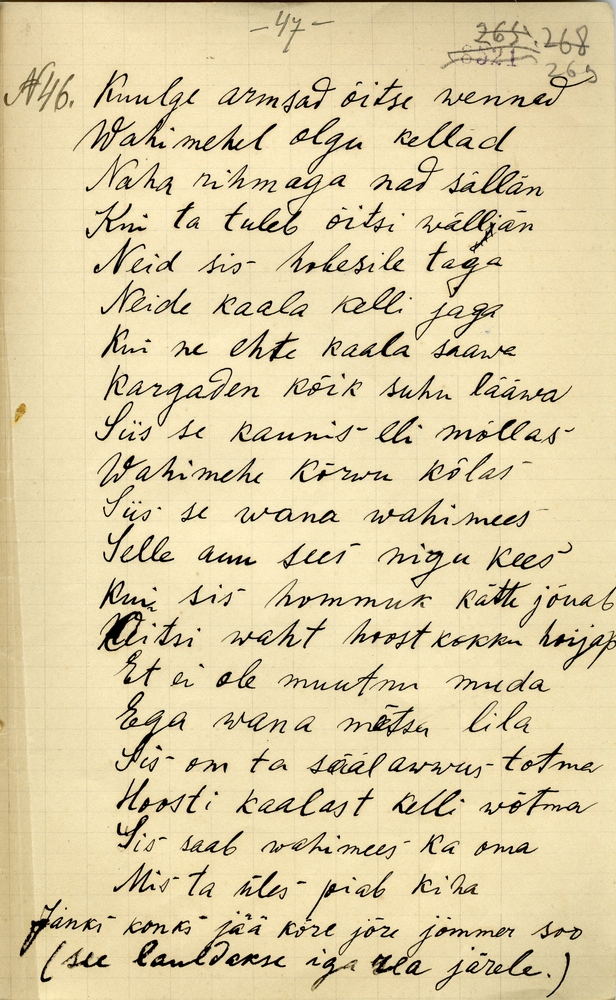 - 47 -
265. 268
8521 269
№ 46. Kuulge armsad õitse wennad
Wahimehel olgu kellad
Naha rihmaga nad sällän
Kui ta tuleb õitsi wälljän
Neid sis hobesile taga
Neide kaala kelli jaga
Kui ne ehte kaala saawa
Kargaden kõik suhu lääwa
Siis se kaunis elli mõllas
Wahimehe kõrwu kõlas
Siis se wana wahimees
Selle auu sees nigu kees
Kui sis hommuk kätte jõuab
Õitsi waht hoost kokku hõijap
Et ei ole muutnu muda
Ega wana mõtsa lila
Sis om ta säälawwus totma
Hoosti kaalast kelli wõtma
Sis saab wahimees ka oma
Mis ta üles piab kiha
Jänks konks jää köre jõre jömmer soo
(see lauldakse iga rea järele.)